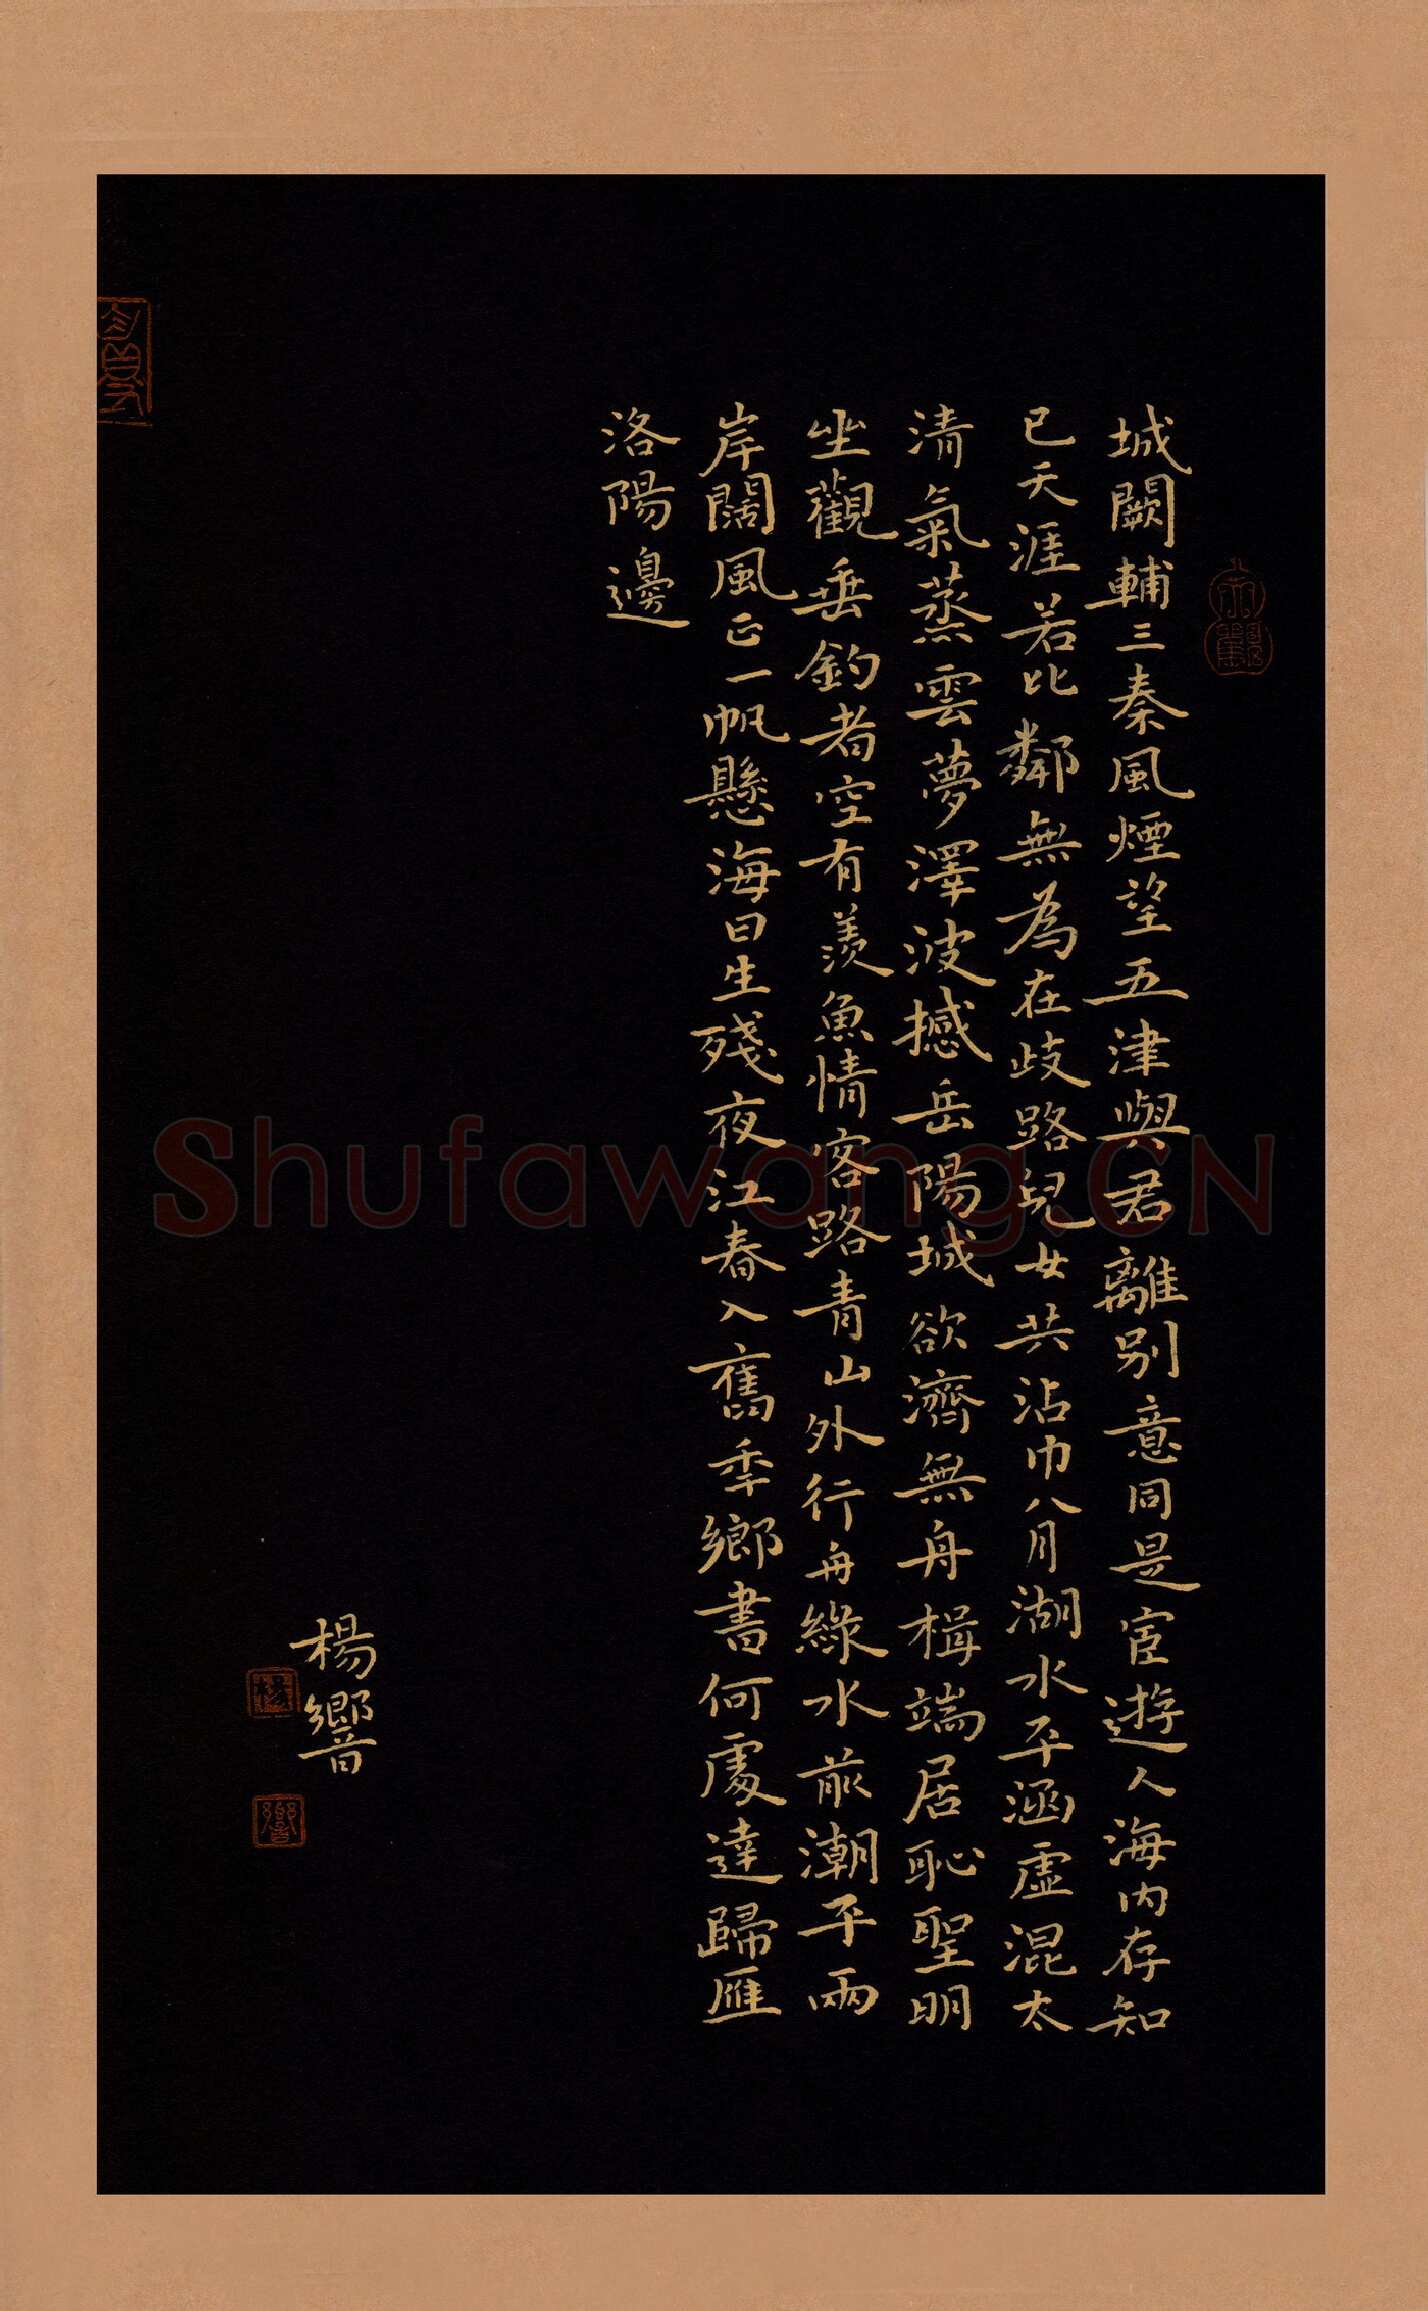 城闕輔三秦風煙望五津與君離別意同是宦遊人海内存知
已天涯若比鄰無為在歧路兒女共沾巾八月湖水平涵虛混太
清氣蒸雲夢澤波撼岳陽城欲濟無舟楫端居恥聖明
坐觀垂釣者空有羨魚情客路青山外行舟綠水前潮平兩
岸闊風正一帆懸海日生殘夜江春入舊季鄉書何處達歸雁
洛陽邊
楊響
楊
響
Shufawang.CN